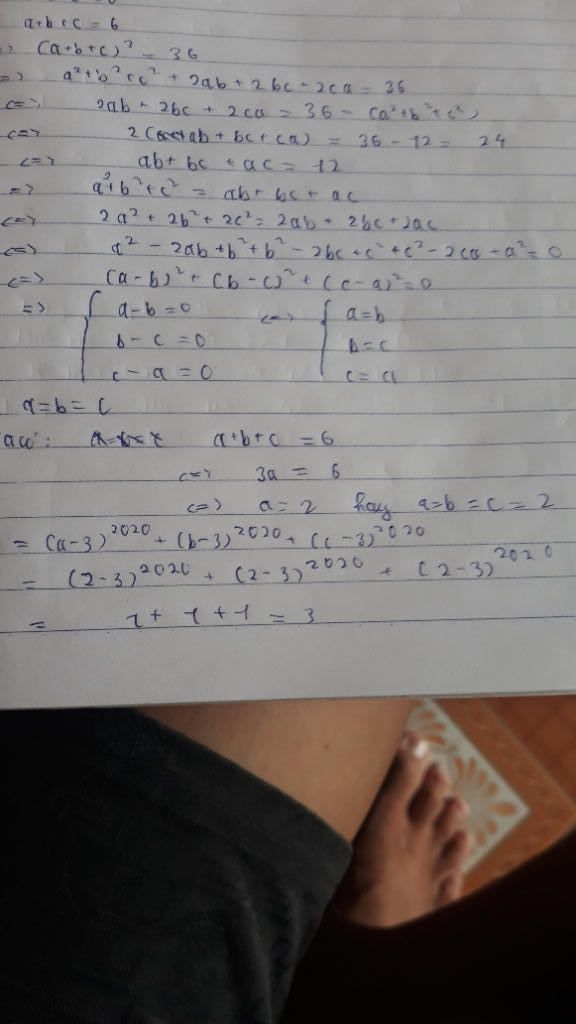 a+b+c = 6
(a+b+c)² = 36
=> a²+b²+c² + 2ab + 2bc + 2ca = 36
<=> 2ab + 2bc + 2ca = 36 - (a²+b²+c²)
<=> 2(ab + bc + ca) = 36 - 12 = 24
<=> ab + bc + ac = 12
=> a²+b²+c² = ab + bc + ac
<=> 2a² + 2b² + 2c² = 2ab + 2bc + 2ac
<=> a² - 2ab + b² + b² - 2bc + c² + c² - 2ca - a² = 0
<=> (a-b)² + (b-c)² + (c-a)² = 0
=> { a-b = 0 <=> { a=b
b-c = 0 b=c
c-a = 0 c=a
a=b=c
a+b+c = 6
<=> 3a = 6
<=> a = 2 hay a=b=c=2
= (a-3)²⁰²⁰ + (b-3)²⁰²⁰ + (c-3)²⁰²⁰
= (2-3)²⁰²⁰ + (2-3)²⁰²⁰ + (2-3)²⁰²⁰
= 1 + 1 + 1 = 3